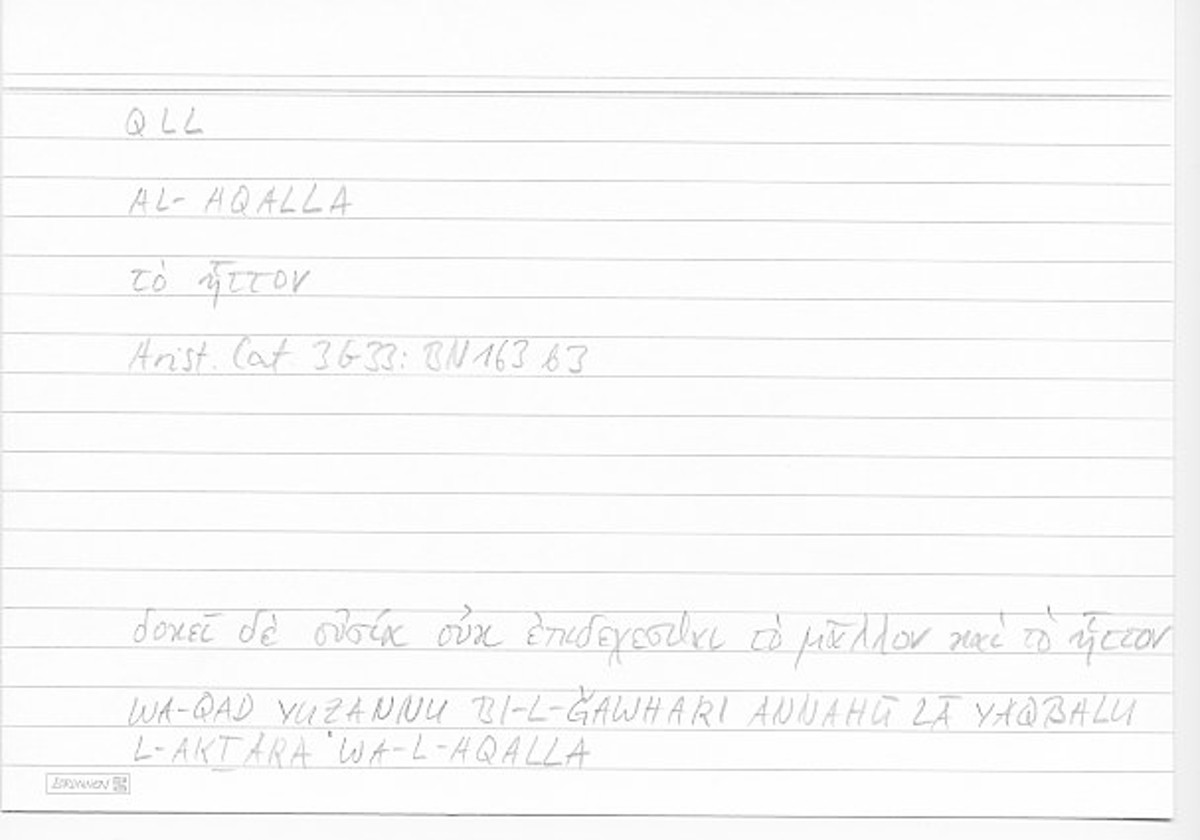 QLL
AL-AQALLA
τὸ ἧττον
Arist. Cat 3b33: BN 163 b3
δοκεῖ δὲ οὐσία οὐκ ἐπιδεχεσθαι τὸ μᾶλλον καὶ τὸ ἧττον
WA-QAD YUZANNU BI-L-ǦAWHARI ANNAHŪ LĀ YAQBALU
L-AKṮARA WA-L-AQALLA